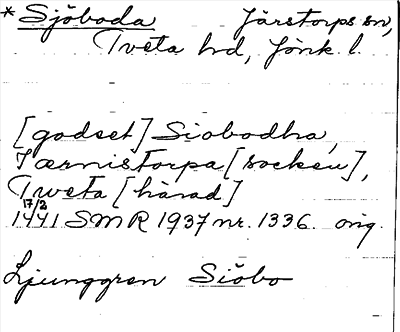 * Sjöboda Järstorps sn,
Tveta hd, Jönk. l.
[godset] Siobodha,
Iærnistorpa [socken],
Tweta [härad]
17/2
1441 SMR 1937 nr. 1336. orig.
Ljunggren Siöbo